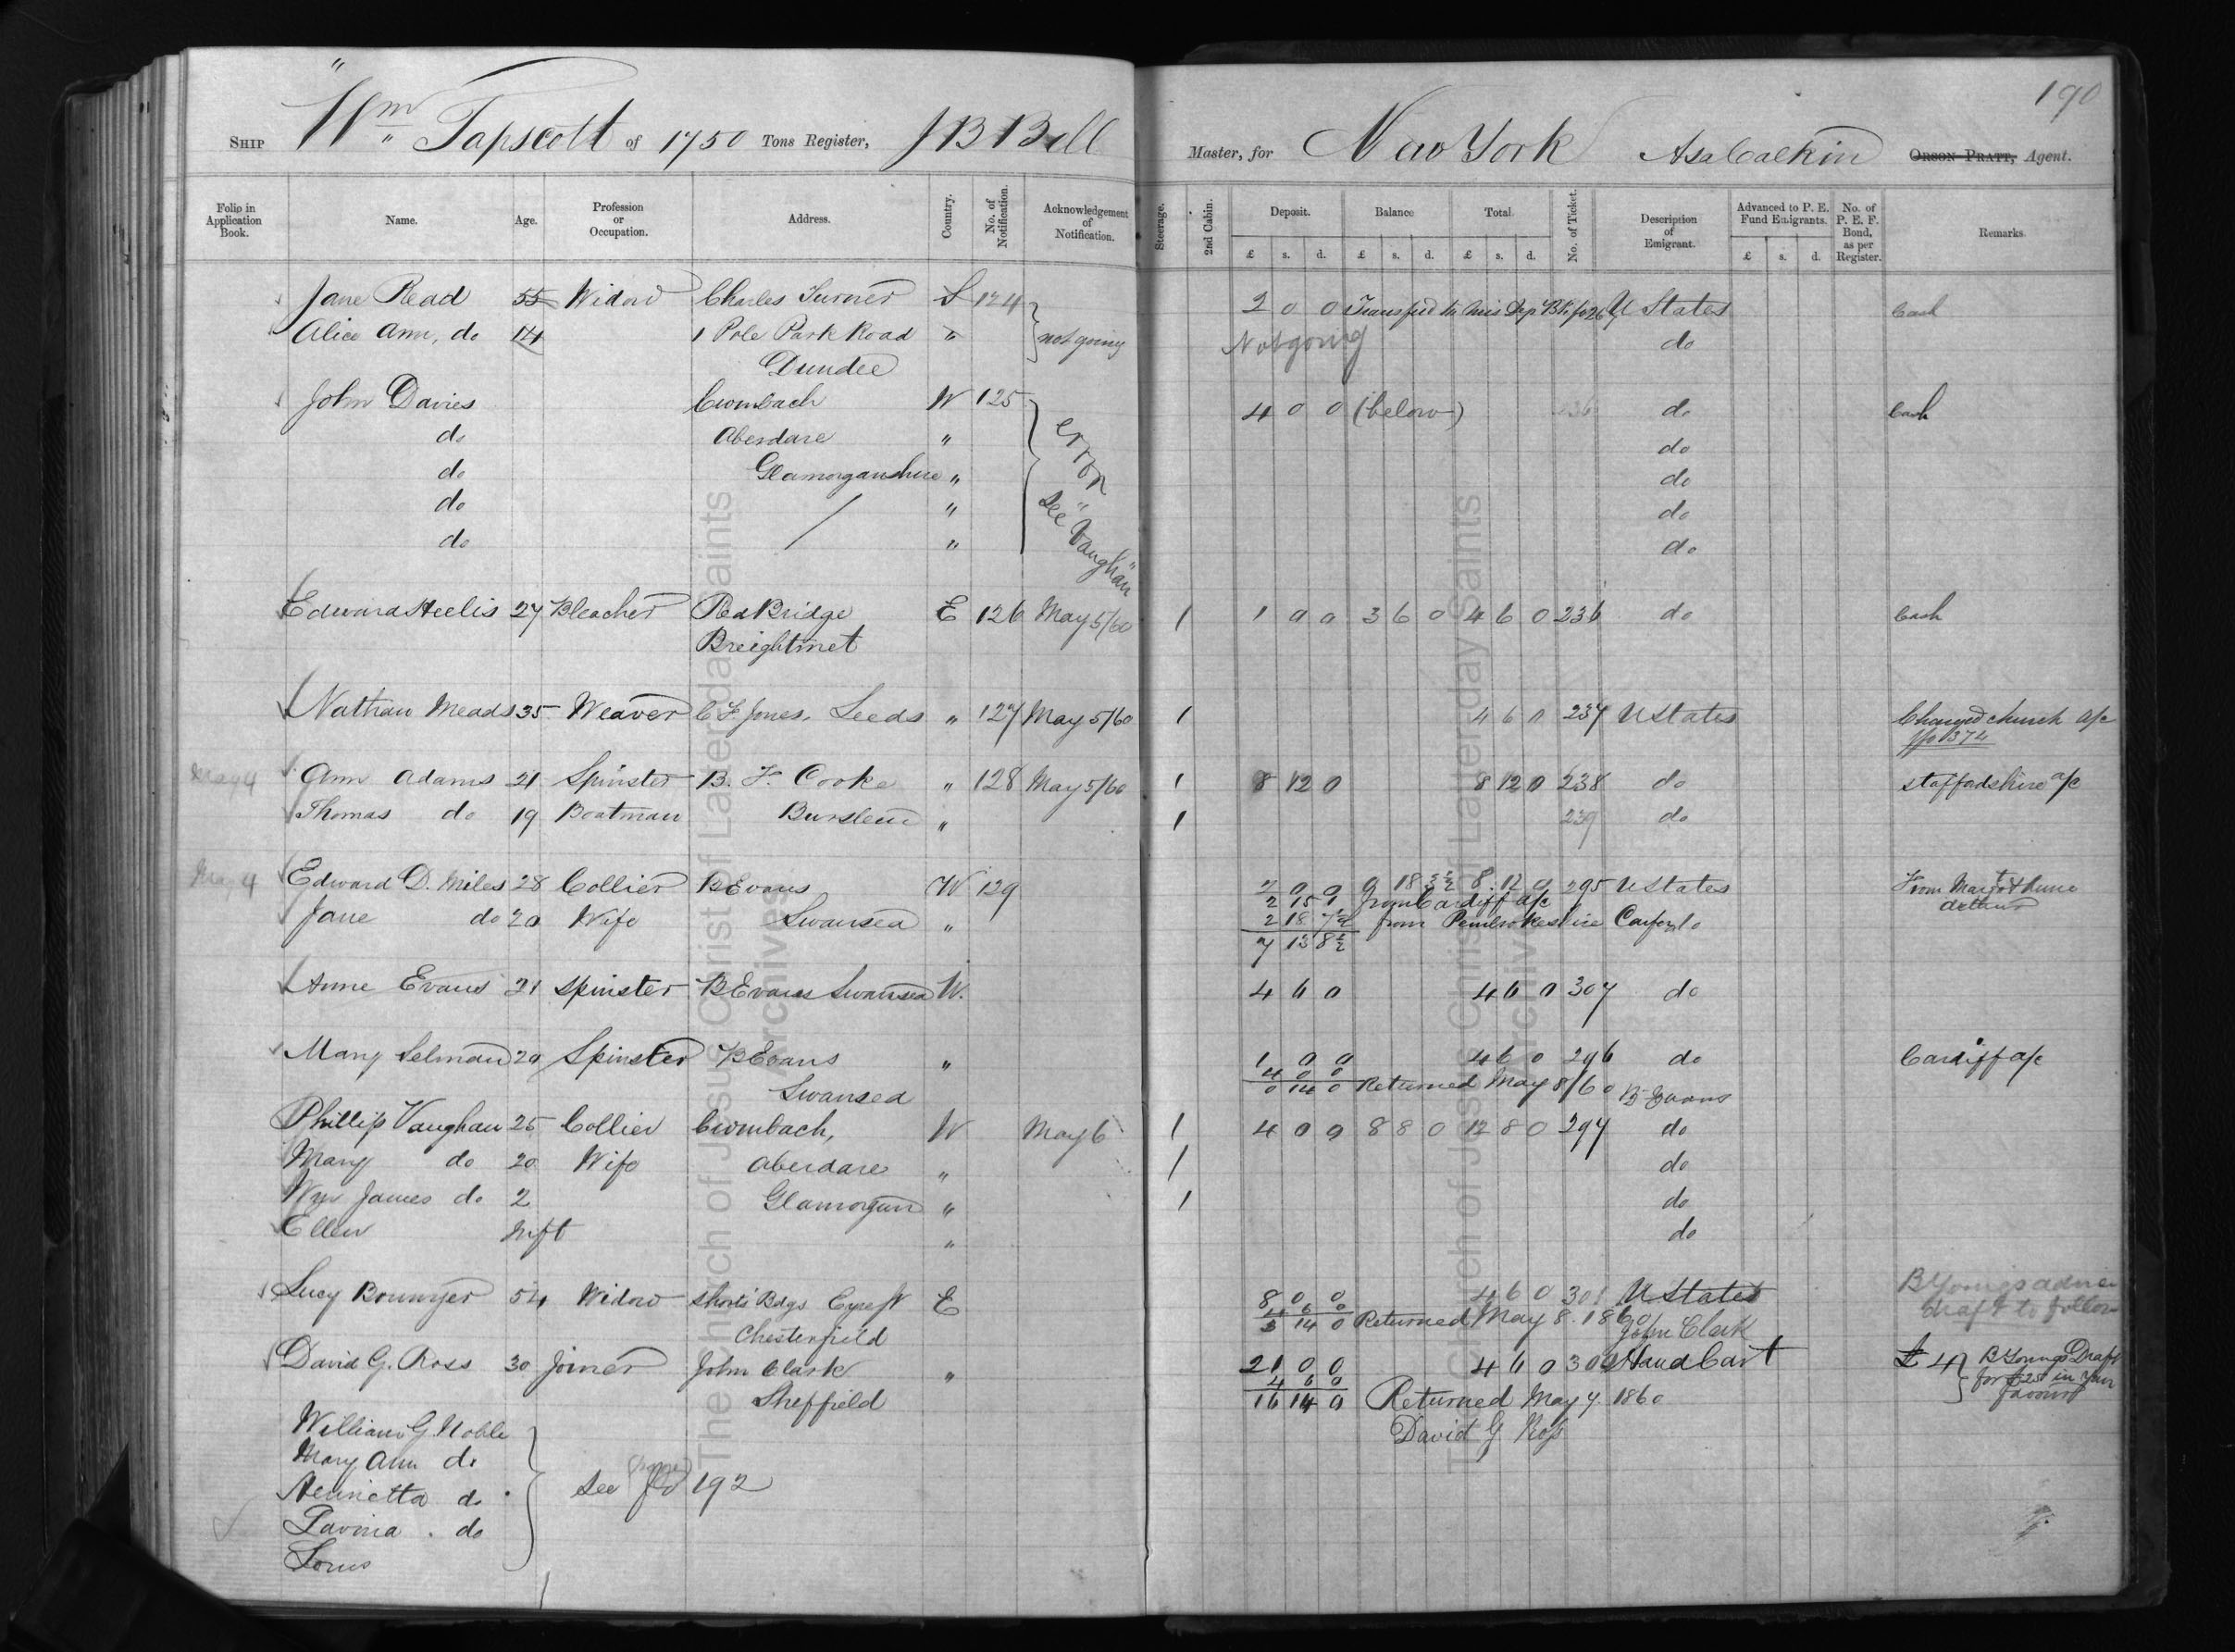 190
Ship "Wm" Tapscott of 1750 Tons Register, J B Bell Master, for New York Asa Calkin Orson Pratt, Agent.
Folio in Application Book. Name. Age. Profession or Occupation. Address. Country. No. of Notification. Acknowledgement of Notification. Steerage. 2nd Cabin. Deposit. Balance Total No. of Ticket. Description of Emigrant. Advanced to P. E. Fund Emigrants. No. of P. E. F. Bond, as per Register. Remarks.
£ s. d. £ s. d. £ s. d. £ s. d.
Jane Read 55 Widow Charles Turner S 124 2 0 0 U States Cash
Alice Ann, do 14 1 Pole Park Road " not going Not going do
Dundee
John Davies Cwmbach W 125 4 0 0 (below) 236 do Cash
do Aberdare " error do
do Glamorganshire " do
do " see "Vaughan" do
do " do
Edward Heelis 27 Bleacher Red Bridge E 126 May 5/60 1 1 0 0 3 6 0 4 6 0 236 do Cash
Breightmet
Nathan Meads 35 Weaver C F Jones. Leeds " 127 May 5/60 1 4 6 0 237 U States Charged church a/c
fo 374
May 4 Ann Adams 21 Spinster B. F. Cooke " 128 May 5/60 1 8 12 0 8 12 0 238 do Staffordshire a/c
Thomas do 19 Boatman Burslem " 1 239 do
May 4 Edward D. Miles 28 Collier B Evans W 129 2 0 0 0 18 3½ 8. 12 0 295 U States
2 15 1 from Cardiff a/c
Jane do 20 Wife Swansea " 2 18 7½ from Pembrokeshire Confer do
7 13 8½
Anne Evans 21 Spinster B Evans Swansea W. 4 6 0 4 6 0 307 do
Mary Selman 20 Spinster B Evans " 1 0 0 4 6 0 296 do Cardiff a/c
4 0 0
Swansea 0 14 0 Returned May 8/60 B Evans
Phillip Vaughan 25 Collier Cwmbach, W May 6 1 4 0 0 8 8 0 12 8 0 297 do
Mary do 20 Wife Aberdare " 1 do
Wm James do 2 Glamorgan " 1 do
Ellen Inft " do
Lucy Bowmyer 54 Widow Shorts Bdgs Eyre St E 8 0 0 4 6 0 301 U States B Youngs
4 6 0 draft to follow
Chesterfield 3 14 0 Returned May 8. 1860
John Clark
David G. Ross 30 Joiner John Clark " 21 0 0 4 6 0 300 Hand Cart £ 4 B Youngs Draft
4 6 0 for £25 in your
Sheffield 16 14 0 Returned May 7. 1860 favour
David G Ross
William G. Noble
Mary Ann do
Henrietta do see fo (page) 192
Lavina. do
Lorus
The Church of Jesus Christ of Latterday Saints
Archives
The Church of Jesus Christ of Latterday Saints
Archives